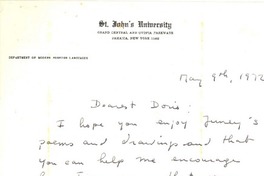 St. John's University
GRAND CENTRAL AND UTOPIA PARKWAYS
JAMAICA, NEW YORK 11432
DEPARTMENT OF MODERN FOREIGN LANGUAGES
May 9th, 1972
Dearest Doris:
I hope you enjoy Jumey's
poems and drawings and that
you can help me encourage